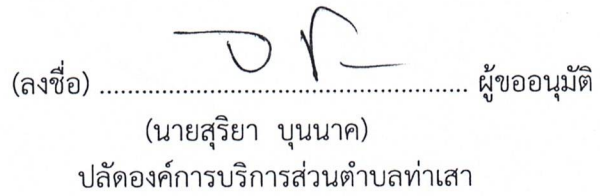 (ลงชื่อ) ................................................... ผู้ขออนุมัติ
(นายสุริยา บุนนาค)
ปลัดองค์การบริการส่วนตำบลท่าเสา